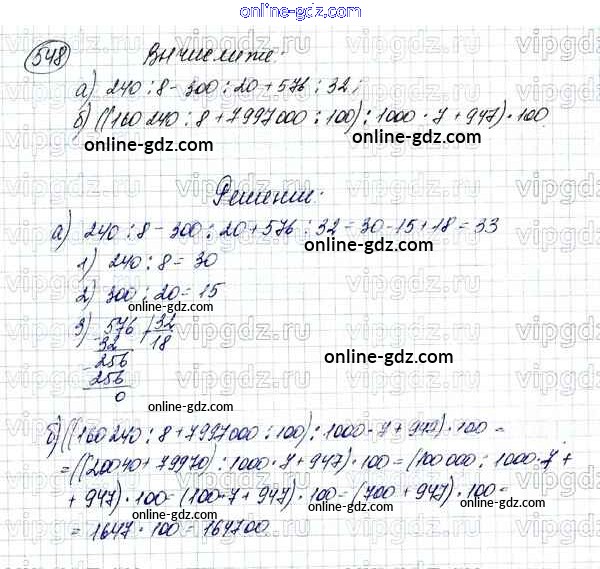 online-gdz.com
548 Вычислите:
а) 240 : 8 - 300 : 20 + 576 : 32;
б) ((160240 : 8 + 7997000 : 100) : 1000 · 7 + 947) · 100
online-gdz.com
online-gdz.com
Решение:
online-gdz.com
а) 240 : 8 - 300 : 20 + 576 : 32 = 30 - 15 + 18 = 33
online-gdz.com
1) 240 : 8 = 30
2) 300 : 20 = 15
online-gdz.com
3) 576 | 32
32 18
- 256
256
0
online-gdz.com
online-gdz.com
б) ((160240 : 8 + 7997000 : 100) : 1000 · 7 + 947) · 100 =
online-gdz.com
= ((20040 + 79970) : 1000 · 7 + 947) · 100 = (100000 : 1000 · 7 +
+ 947) · 100 = (100 · 7 + 947) · 100 = (700 + 947) · 100 =
online-gdz.com
= 1647 · 100 = 164700
online-gdz.com
online-gdz.com